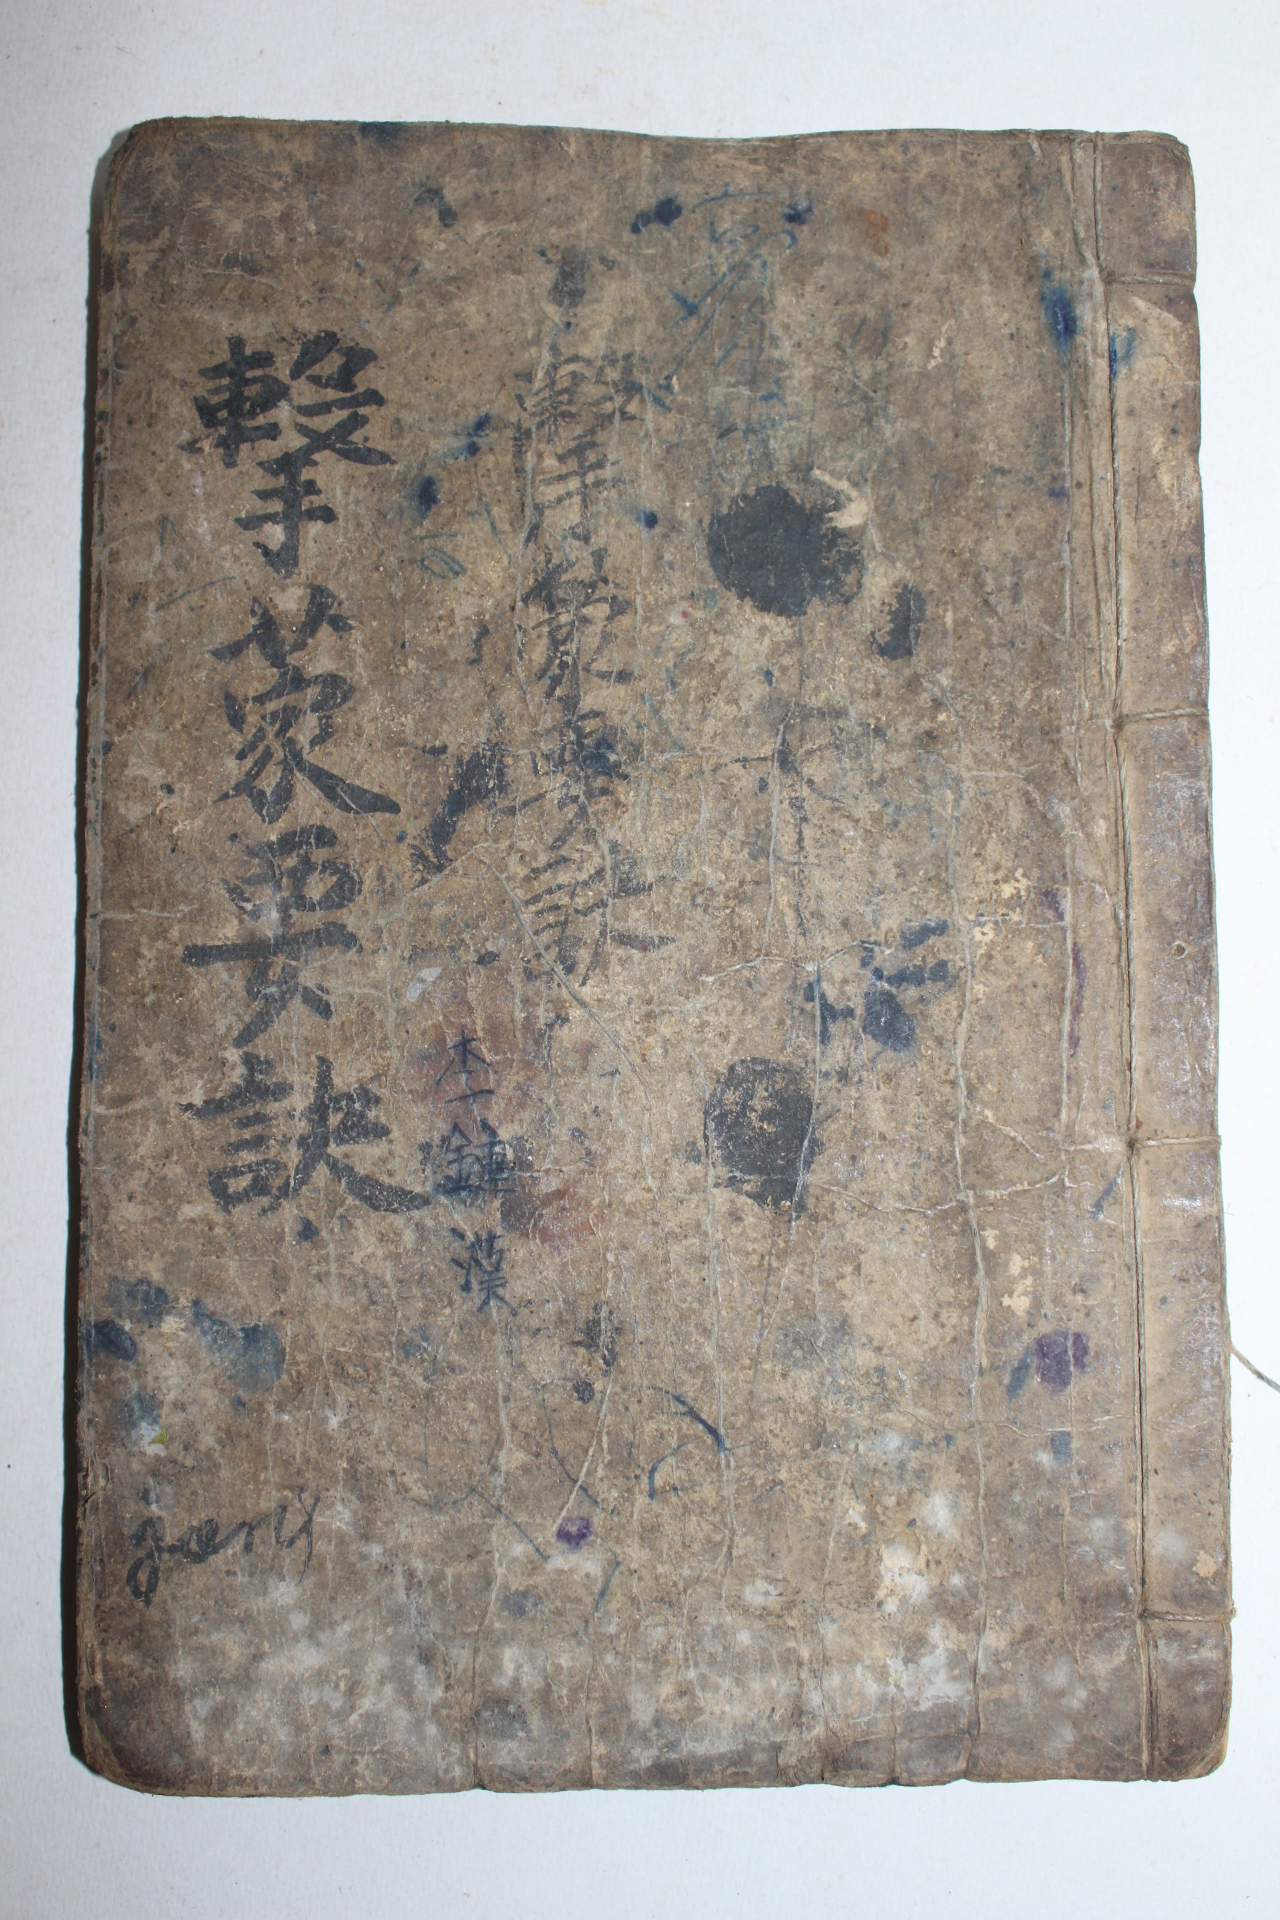 擊蒙要訣
擊蒙要訣
李鍾漢